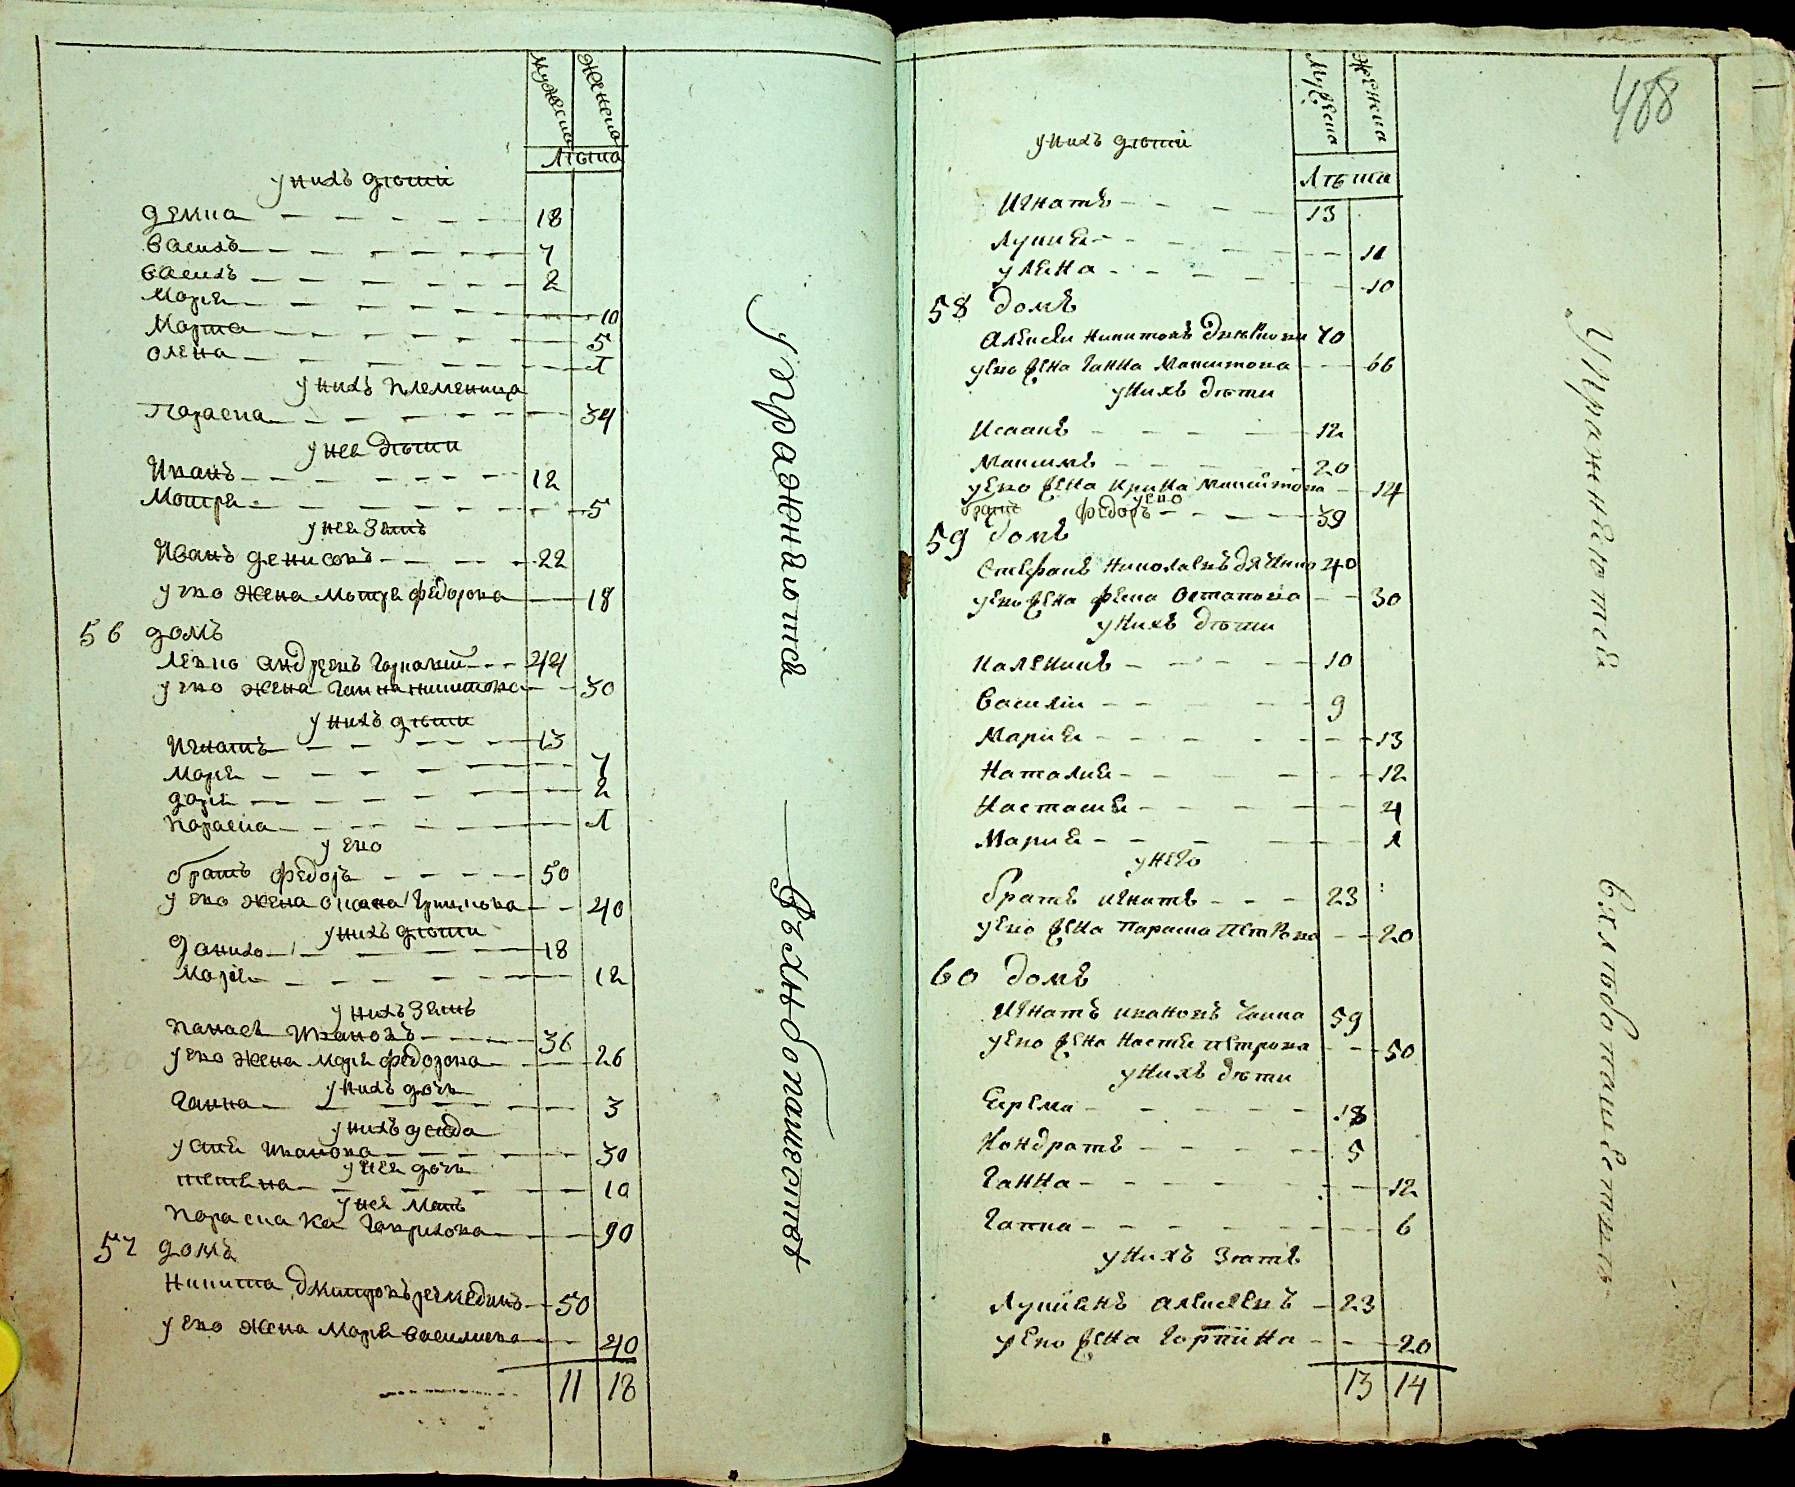 Мужеска
Женска
Лѣта
у нихъ дѣти
демка 18
василь 7
василь 2
Марія 10
Марта 5
олена 1
у нихъ племеница
Параска 34
у нея дѣти
Иванъ 12
Мотря 5
у нея зять
Иванъ денисовъ 22
у его жена мотря федорова 18
56 домъ
левко андреевъ 44
у его жена Ганна никитова 30
у нихъ дѣти
Игнатъ 13
Марія 7
дарія 2
параска 1
у его
братъ федоръ 50
у его жена 40
у нихъ дѣти
данило 18
Марія 12
у нихъ зять
панасъ Ивановъ 36
у его жена марія федорова 26
у нихъ дочь
Ганна 3
у нихъ усѣда
устя Иванова 30
у нея дочь
тетяна 10
у нея мать
параска Гаврилова 90
57 домъ
Никита дмитровъ 50
у его жена Марія василиева 40
11 18
упражняютса
в хлѣбопашествѣ
488
Мужеска
Женска
Лѣта
у нихъ дѣти
Игнатъ 13
Лукия 11
уляна 10
58 домъ
Алексѣй Никитовъ 70
у его жена Ганна Макситова 66
у нихъ дѣти
Исаакъ 12
Максимъ 20
у его жена Ирина 14
братъ его федоръ 39
59 домъ
Стефанъ Николаевъ 40
у его жена фенна Остапова 30
у нихъ дѣти
Каленикъ 10
Василій 9
Мария 13
Наталия 12
Настасия 4
Мария 1
у него
братъ игнатъ 23
у его жена параска Петрова 20
60 домъ
Игнатъ ивановъ 59
у его жена Настя петрова 50
у нихъ дѣти
Ерема 18
Кондратъ 5
Ганна 12
Гапка 6
у нихъ зятъ
Лукиянъ алексѣевъ 23
у его жена Горпина 20
13 14
Упражняютса